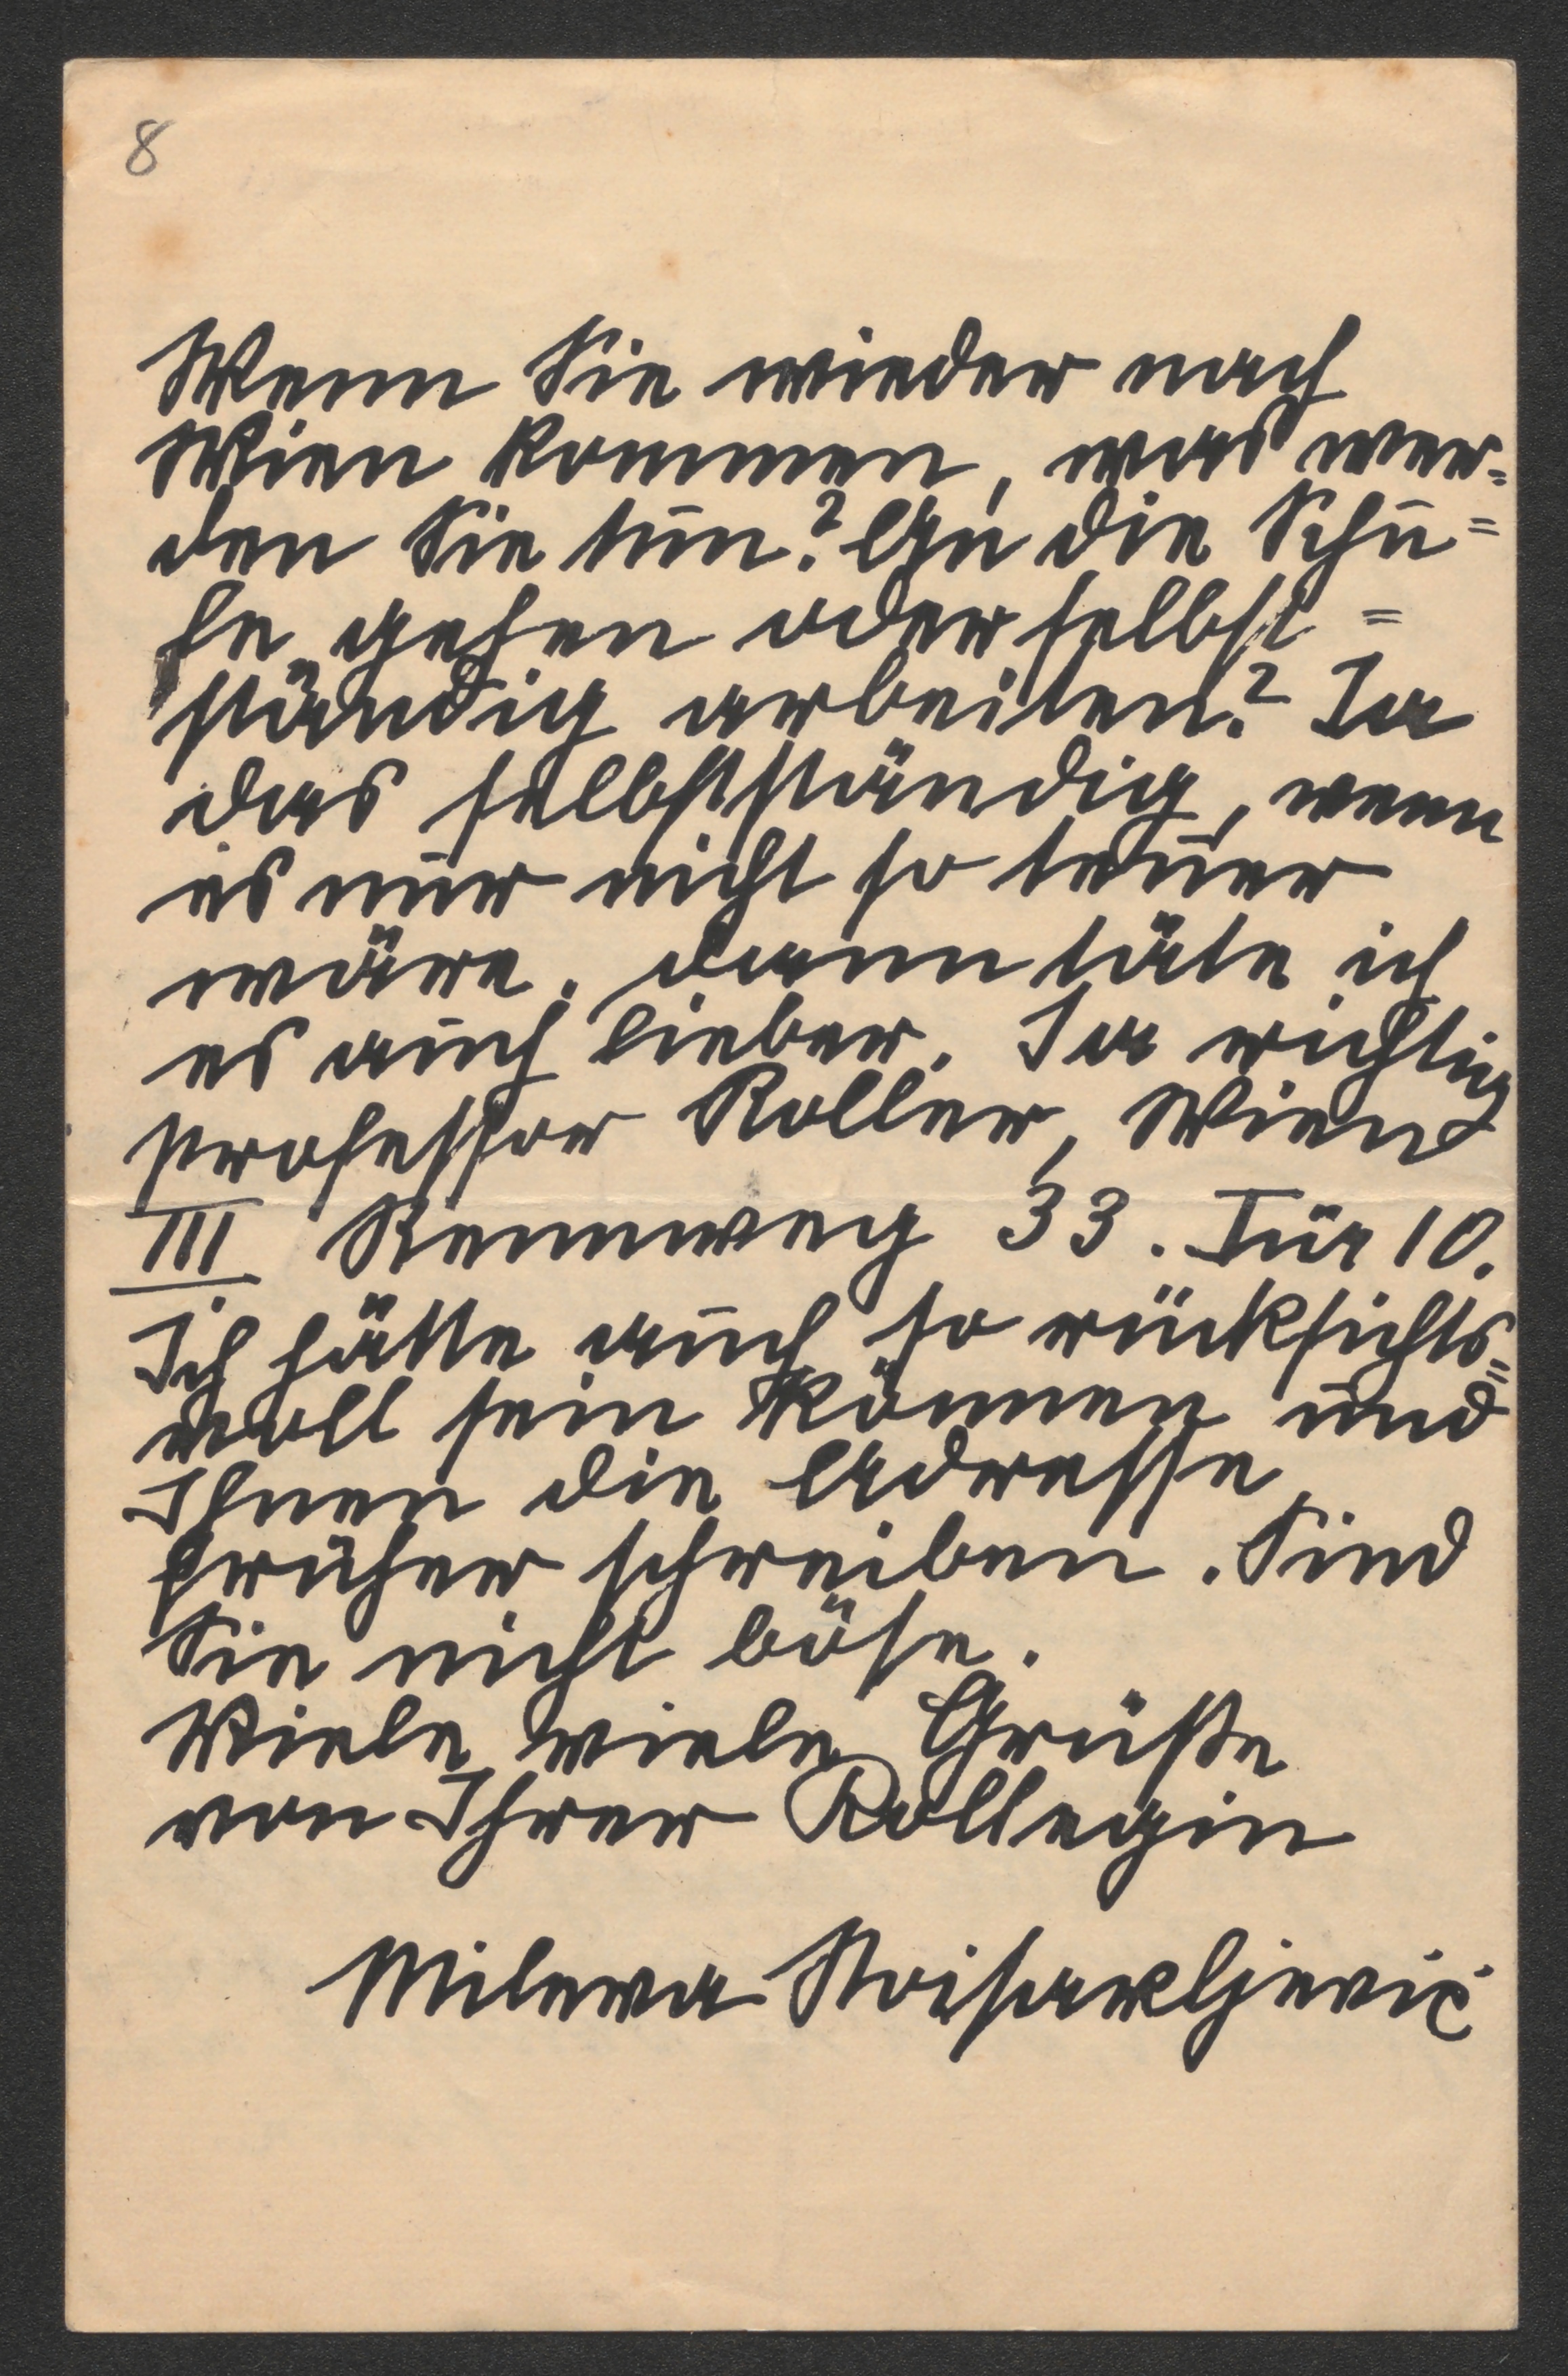 8
Wenn Sie wieder nach
Wien kommen, was wer=
den Sie tun? An die Schu=
le gehen oder selbst=
ständig arbeiten? Ja
das selbstständig, wenn
es nur nicht so teuer
wäre. dann täte ich
es auch lieber. Ja richtig
Professor Roller, Wien
III Rennweg 33. Tür 10.
Ich hätte auch so rücksichts=
voll sein können und
Ihnen die Adresse
früher schreiben. Sind
Sie nicht böse.
Viele viele Grüße
von Ihrer Kollegin
Milewa